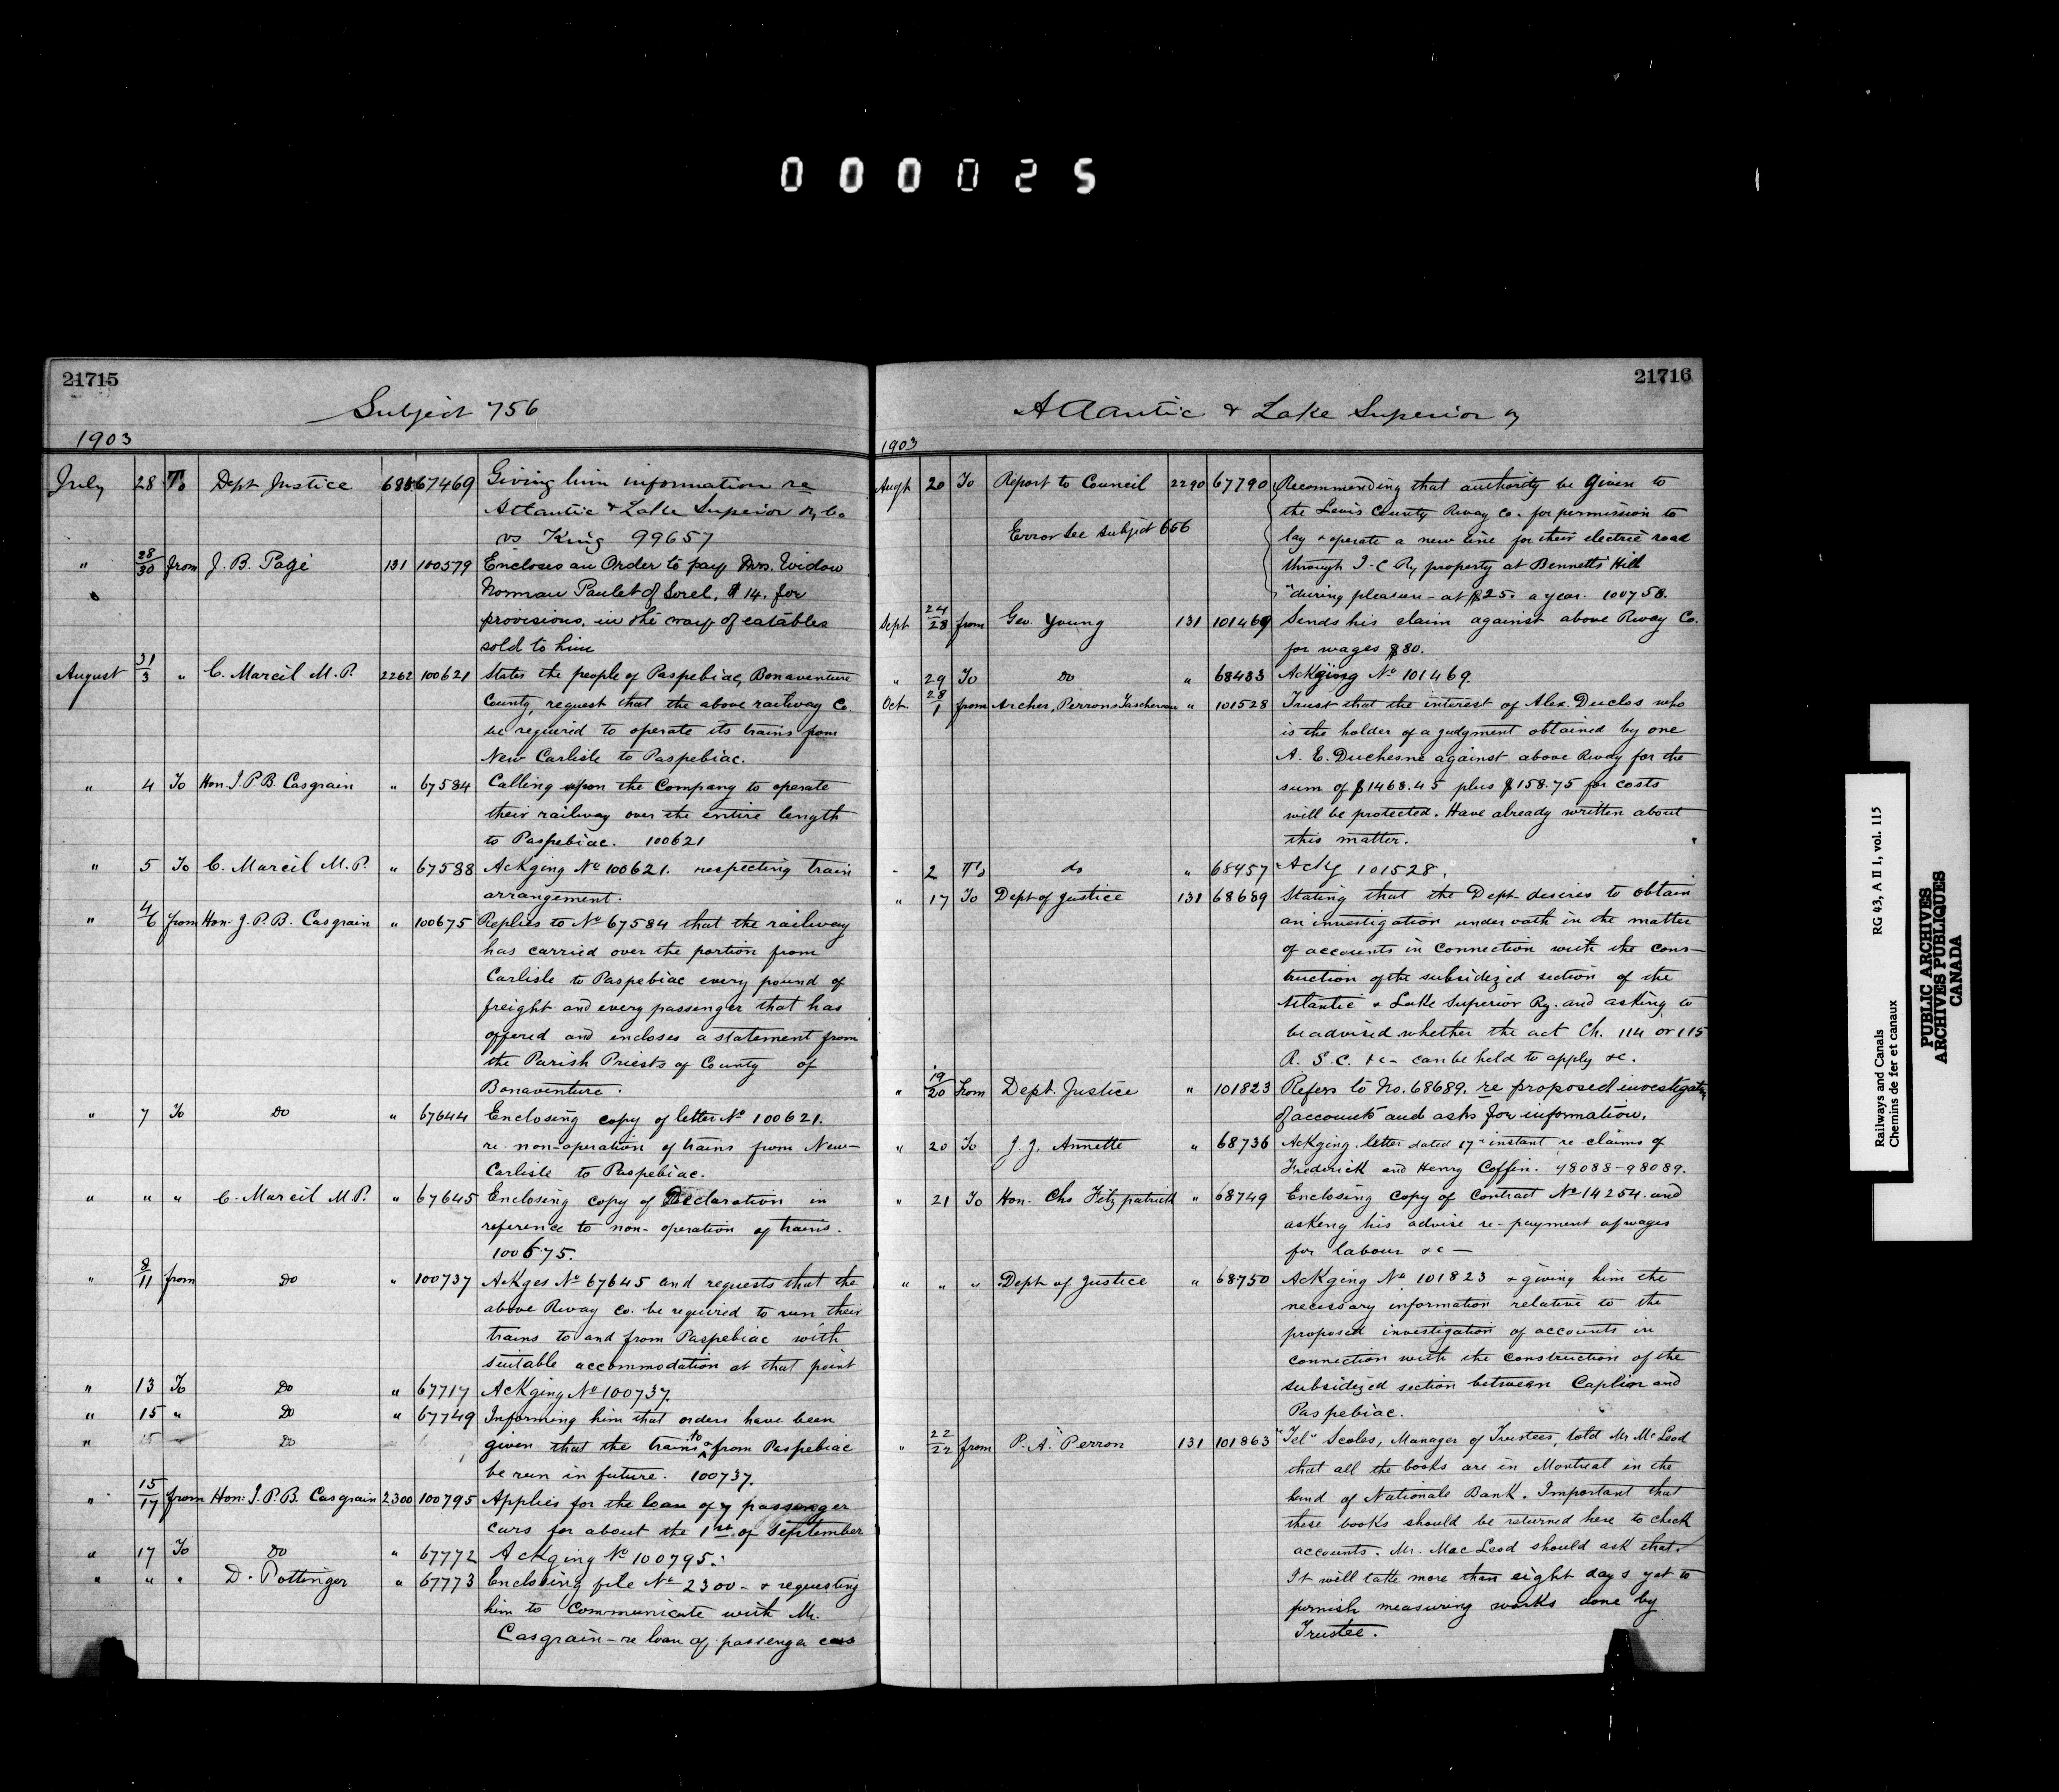 000025
21715
Subject 756
1903
July 28 To Dept Justice 685 67469 Giving him information re
Atlantic & Lake Superior Ry Co
vs King 99657
" 28/30 from J. B. Pagé 131 100579 Encloses an Order to pay Mrs. Widow
Norman Paulet of Sorel, $14. for
provisions, in the way of eatables
sold to him
August 31/3 " C. Marcil M.P. 2262 100621 States the people of Paspebiac, Bonaventure
County, request that the above railway Co.
be required to operate its trains from
New Carlisle to Paspebiac.
" 4 To Hon. J.P.B. Casgrain " 67584 Calling upon the Company to operate
their railway over the entire length
to Paspebiac. 100621
" 5 To C. Marcil M.P. " 67588 Ackging No 100621. respecting train
arrangement.
" 4/6 from Hon. J.P.B. Casgrain " 100675 Replies to No 67584 that the railway
has carried over the portion from
Carlisle to Paspebiac every pound of
freight and every passenger that has
offered and encloses a statement from
the Parish Priests of County of
Bonaventure.
" 7 To Do " 67644 Enclosing copy of letter No 100621.
re non-operation of trains from New-
Carlisle to Paspebiac.
" " " C. Marcil M.P. " 67645 Enclosing copy of Declaration in
reference to non-operation of trains.
100675.
" 8/11 from Do " 100737 Ackges No 67645 and requests that the
above Rway Co. be required to run their
trains to and from Paspebiac with
suitable accommodation at that point
" 13 To Do " 67717 Ackging No 100737.
" 15 " Do " 67749 Informing him that orders have been
" 15 " Do given that the trains to & from Paspebiac
be run in future. 100737.
" 15/17 from Hon. J.P.B. Casgrain 2300 100795 Applies for the loan of 7 passenger
cars for about the 1st of September
" 17 To Do " 67772 Ackging No 100795.
" " " D. Pottinger " 67773 Enclosing file No 2300 - & requesting
him to communicate with Mr.
Casgrain - re loan of passenger cars
21716
Atlantic & Lake Superior Ry
1903
Augt 20 To Report to Council 2290 67790 Recommending that authority be given to
the Levis County Rway Co. for permission to
Error see subject 656 lay & operate a new line for their electric road
through I. C Ry property at Bennetts Hill
"during pleasure - at $25. a year. 100758.
Sept 24/28 from Geo. Young 131 101469 Sends his claim against above Rway Co.
for wages $80.
" 29 To Do " 68433 Ackging No 101469.
Oct. 28/1 from Archer, Perron & Taschereau " 101528 Trust that the interest of Alex. Duclos who
is the holder of a judgment obtained by one
A. E. Duchesne against above Rway for the
sum of $1468.45 plus $158.75 for costs
will be protected. Have already written about
this matter.
" 2 To do " 68457 Ackg 101528.
" 17 To Dept of Justice 131 68689 Stating that the Dept. desires to obtain
an investigation under oath in the matter
of accounts in connection with the cons-
truction of the subsidized section of the
Atlantic & Lake Superior Ry. and asking to
be advised whether the act Ch. 114 or 115
R. S. C. &c - can be held to apply &c.
" 19/20 from Dept. Justice " 101823 Refers to No. 68689. re proposed investigation
of accounts and asks for information.
" 20 To J. J. Annette " 68736 Ackging letter dated 17" instant re claims of
Frederick and Henry Coffin. 98088-98089.
" 21 To Hon. Chs Fitzpatrick " 68749 Enclosing copy of Contract No 14254. and
asking his advise re-payment of wages
for labour &c -
" " " Dept of Justice " 68750 Ackging No 101823 & giving him the
necessary information relative to the
proposed investigation of accounts in
connection with the construction of the
subsidized section between Caplin and
Paspebiac.
" 22/22 from P. A. Perron 131 101863 "Tel" Scoles, Manager of Trustees, told Mr McLeod
that all the books are in Montreal in the
hand of Nationale Bank. Important that
these books should be returned here to check
accounts. Mr. MacLeod should ask that.
It will take more than eight days yet to
furnish measuring works done by
Trustee.
Railways and Canals RG 43, A II 1, vol. 115
Chemins de fer et canaux
PUBLIC ARCHIVES
ARCHIVES PUBLIQUES
CANADA